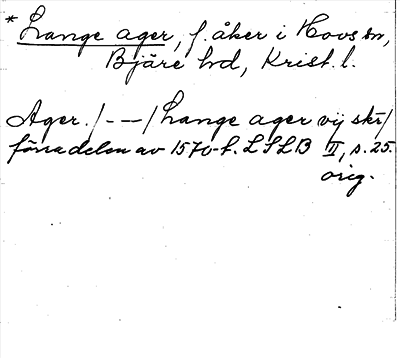 * Lange ager, f. åker i Hovs sn,
Bjäre hd, Krist. l.
Ager. /---/ Lange ager vij skr/
förra delen av 1570-t. LSLB II, s. 25.
orig.